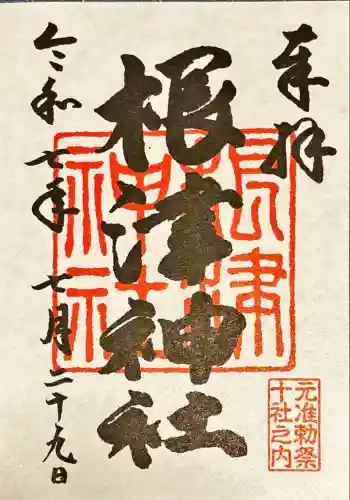 奉拝
根津神社
令和七年七月二十九日
根津
神社
元准勅祭
十社之内